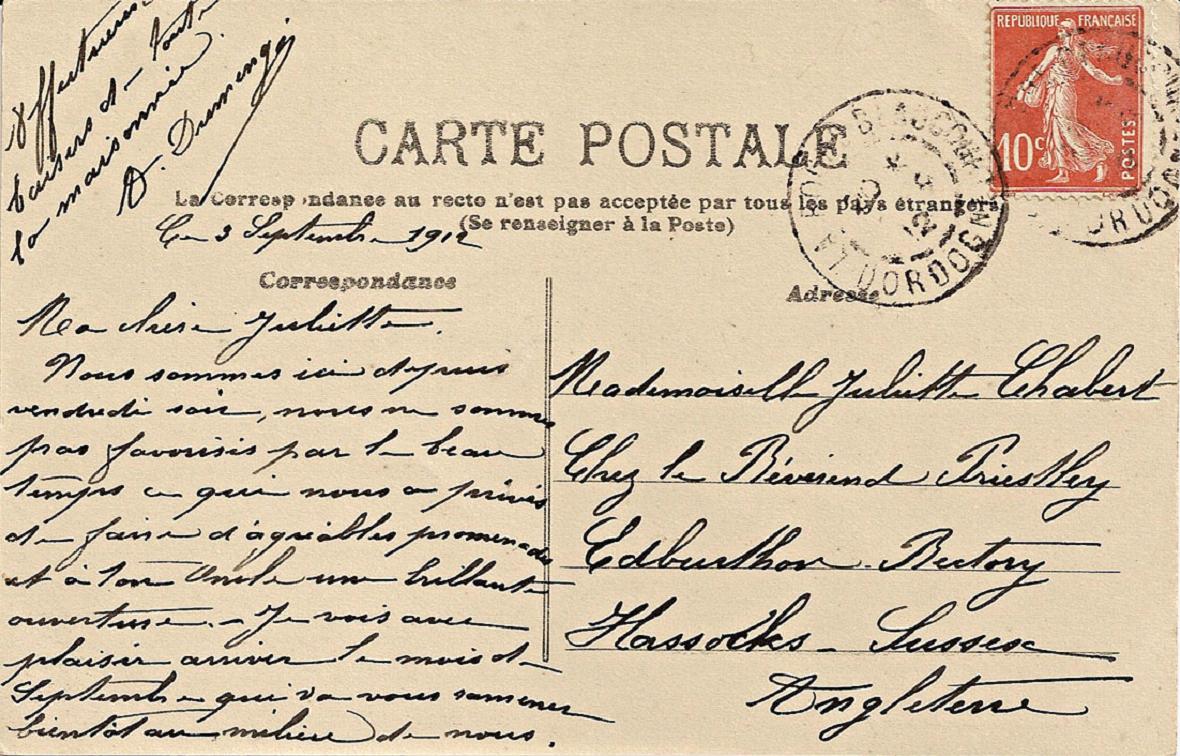 Affectueux
baisers de toute
la maisonnée.
A. Dumengé
REPUBLIQUE FRANÇAISE
10c
POSTES
CARTE POSTALE
La Correspondance au recto n'est pas acceptée par tous les pays étrangers
(Se renseigner à la Poste)
Ce 3 Septembre 1912
Correspondance
Ma chère Juliette.
Nous sommes ici depuis
vendredi soir, nous ne sommes
pas favorisés par le beau
temps ce qui nous a privés
de faire d'agréables promenades
et à ton Oncle une brillante
ouverture. - Je vois avec
plaisir arriver le mois de
Septembre qui va vous ramener
bientôt au milieu de nous.
BEAUCOURT
DORDOGNE
Adresse
Mademoiselle Juliette Chabert
Chez le Révérend Priestley
Edburthon Rectory
Hassocks - Sussex
Angleterre
DORDOGNE